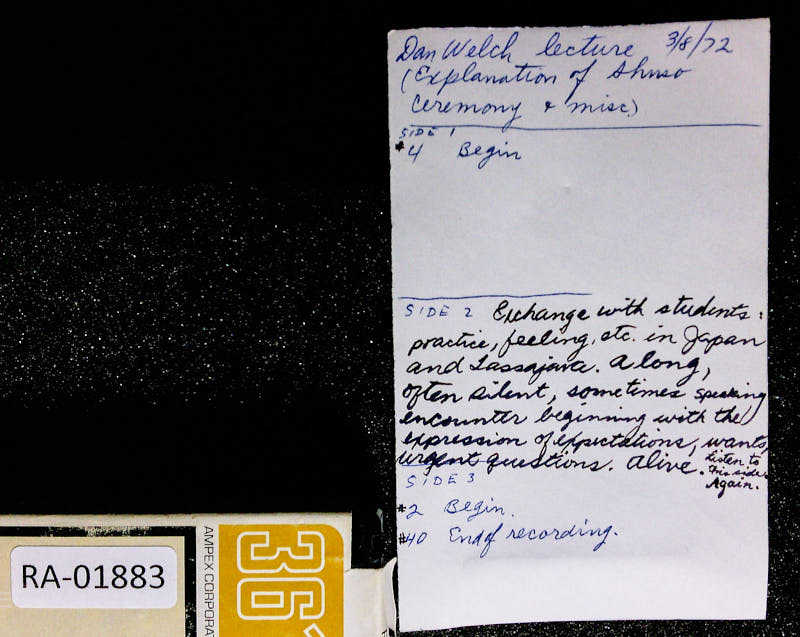 Dan Welch lecture 3/8/72
(Explanation of Shuso
Ceremony & misc)
SIDE 1
#4 Begin
SIDE 2 Exchange with students:
practice, feeling, etc. in Japan
and Tassajara. A long,
often silent, sometimes speaking
encounter beginning with the
expression of expectations, wants,
urgent questions. Alive. Listen to
this side
Again.
SIDE 3
#2 Begin.
#40 End of recording.
RA-01883
AMPEX CORPORA
361